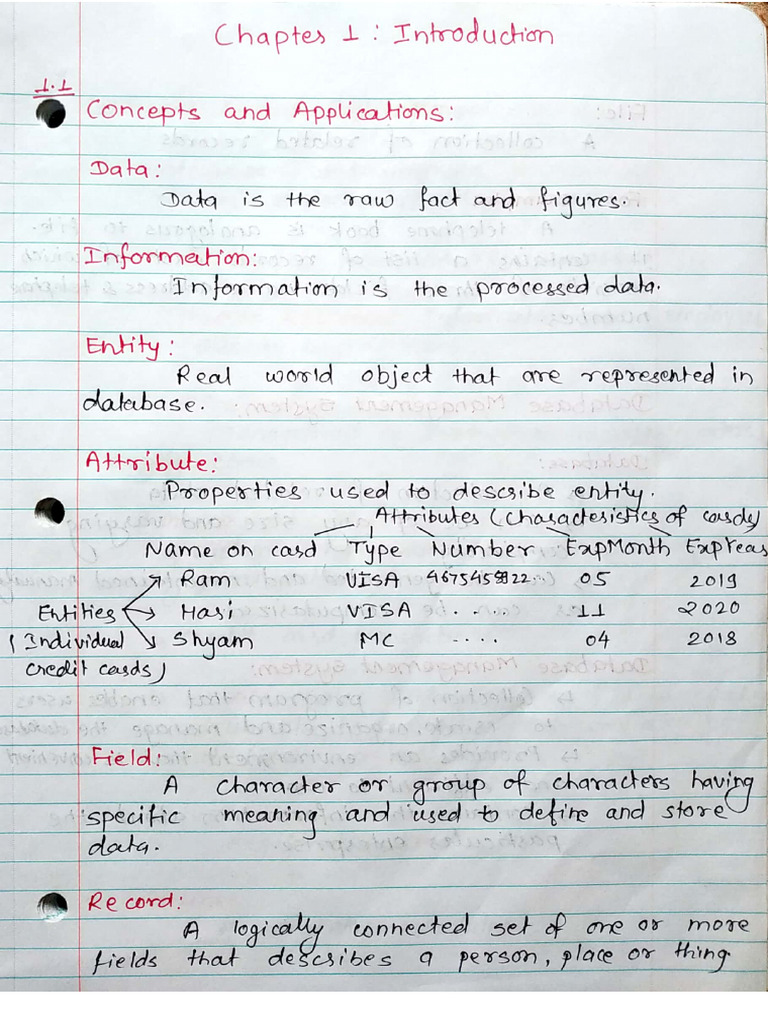 Chapter 1 : Introduction
1.1
Concepts and Applications:
Data:
Data is the raw fact and figures.
Information:
Information is the processed data.
Entity:
Real world object that are represented in
database.
Attribute:
Properties used to describe entity.
Attributes (characteristics of cards)
Name on card Type Number ExpMonth ExpYear
Ram VISA 05 2019
Entities Hari VISA ..... 11 2020
(Individual Shyam MC .... 04 2018
credit cards)
Field:
A character or group of characters having
specific meaning and used to define and store
data.
Record:
A logically connected set of one or more
fields that describes a person, place or thing